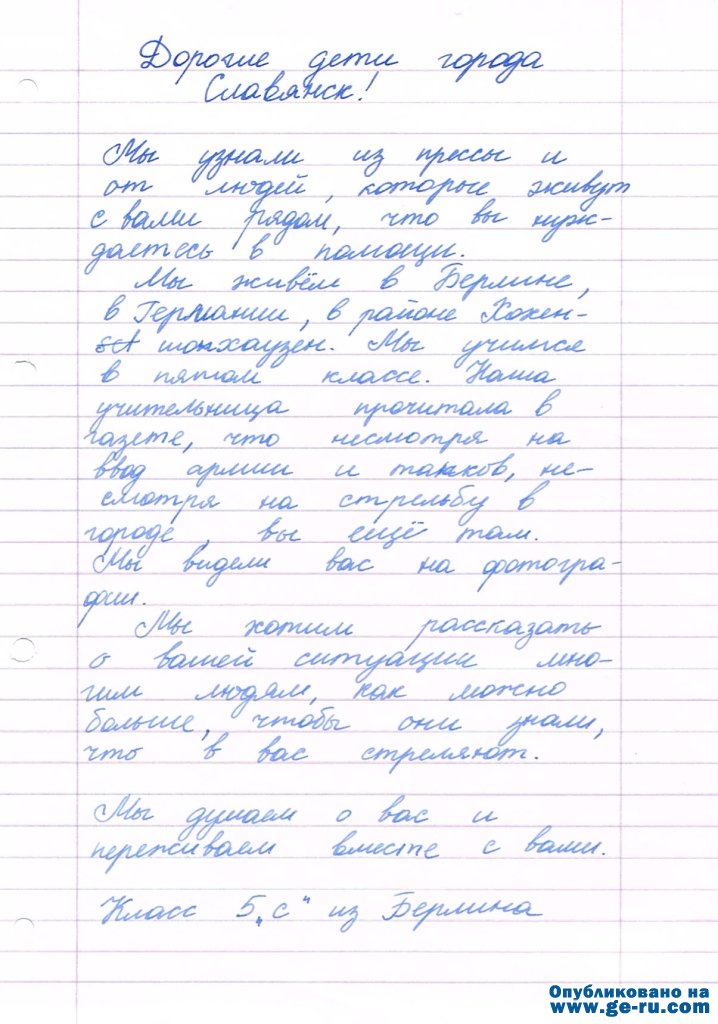 Дорогие дети города
Славянск!
Мы узнали из прессы и
от людей, которые живут
с вами рядом, что вы нуж-
даетесь в помощи.
Мы живём в Берлине,
в Германии, в районе Хохен-
шонхаузен. Мы учимся
в пятом классе. Наша
учительница прочитала в
газете, что несмотря на
ввод армии и танков, не-
смотря на стрельбу в
городе, вы ещё там.
Мы видели вас на фотогра-
фии.
Мы хотим рассказать
о вашей ситуации мно-
гим людям, как можно
больше, чтобы они знали,
что в вас стреляют.
Мы думаем о вас и
переживаем вместе с вами.
Класс 5 „с“ из Берлина
Опубликовано на
www.ge-ru.com